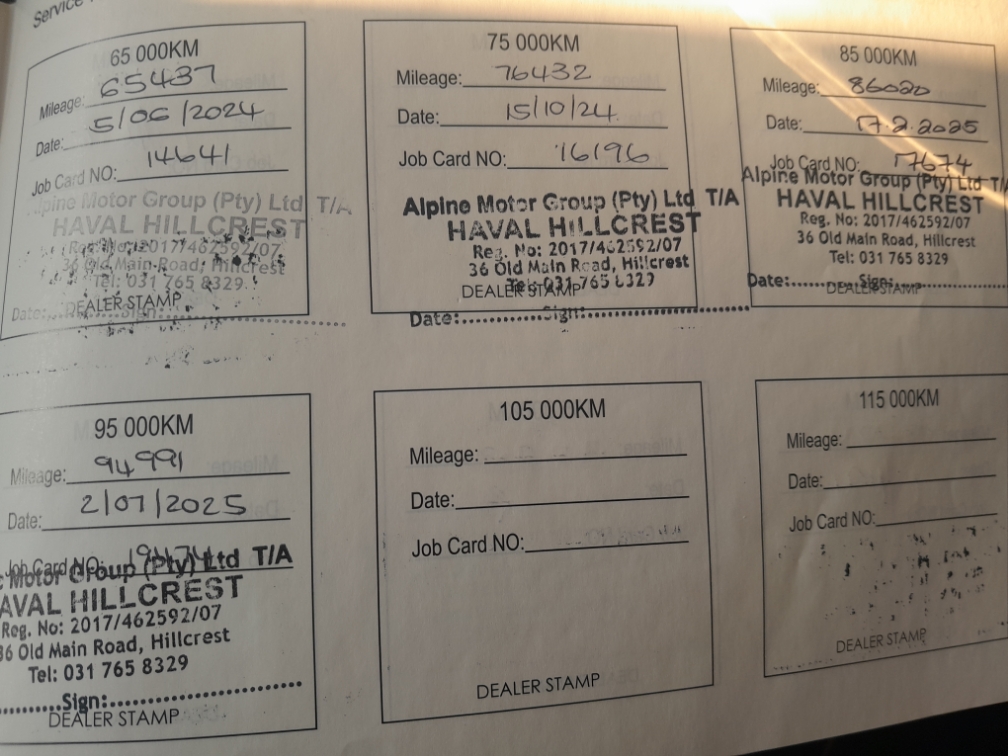 Service
65 000KM
Mileage: 65437
Date: 5/06/2024
Job Card NO: 14641
Alpine Motor Group (Pty) Ltd T/A
HAVAL HILLCREST
Reg. No: 2017/462592/07
36 Old Main Road, Hillcrest
Tel: 031 765 8329
DEALER STAMP
Date:..........Sign:....................
75 000KM
Mileage: 76432
Date: 15/10/24
Job Card NO: 16196
Alpine Motor Group (Pty) Ltd T/A
HAVAL HILLCREST
Reg. No: 2017/462592/07
36 Old Main Road, Hillcrest
Tel: 031 765 8329
DEALER STAMP
Date:..............Sign:....................
85 000KM
Mileage: 86020
Date: 17.2.2025
Job Card NO: 17674
Alpine Motor Group (Pty) Ltd T/A
HAVAL HILLCREST
Reg. No: 2017/462592/07
36 Old Main Road, Hillcrest
Tel: 031 765 8329
Date:..............Sign:....................
DEALER STAMP
95 000KM
Mileage: 94991
Date: 2/07/2025
Job Card NO:
Motor Group (Pty) Ltd T/A
AVAL HILLCREST
Reg. No: 2017/462592/07
36 Old Main Road, Hillcrest
Tel: 031 765 8329
..........Sign:..............................
DEALER STAMP
105 000KM
Mileage:
Date:
Job Card NO:
DEALER STAMP
115 000KM
Mileage:
Date:
Job Card NO:
DEALER STAMP